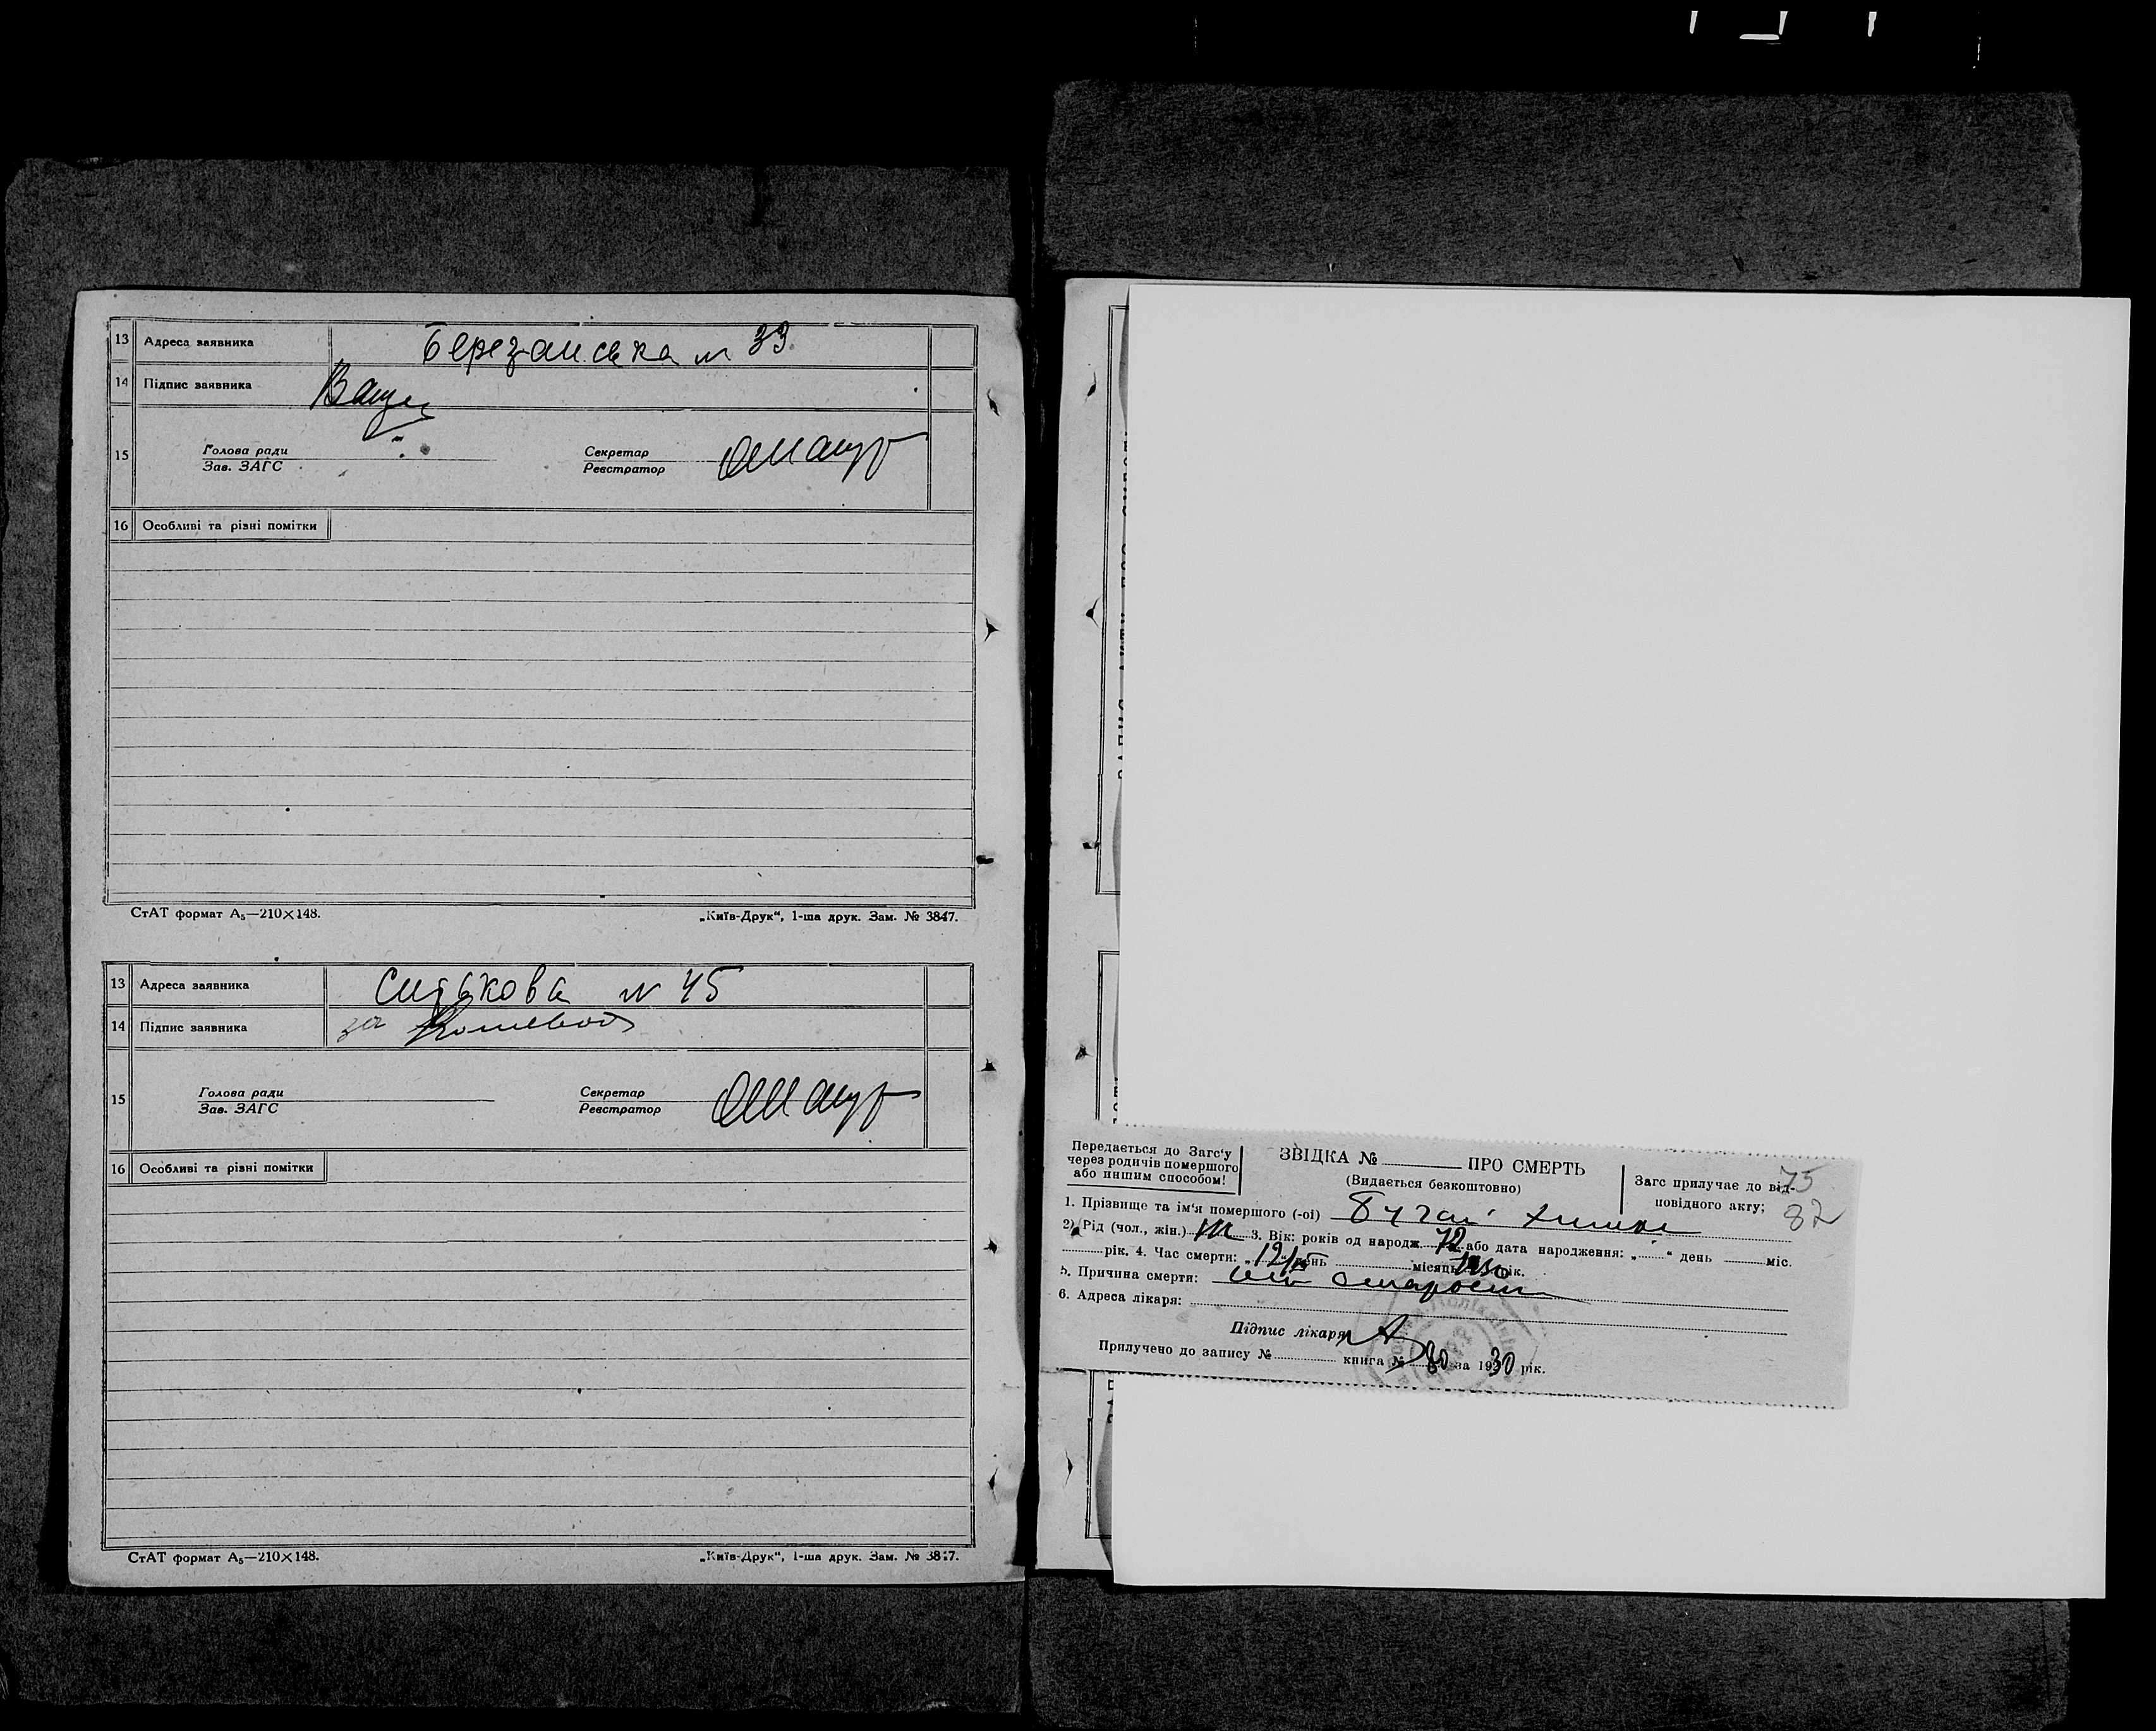 13 Адреса заявника Березанська № 33
14 Підпис заявника Ващ
15 Голова ради Секретар
Зав. ЗАГС Реєстратор
16 Особливі та різні помітки
СтАТ формат А₅—210×148. „Київ-Друк“, 1-ша друк. Зам. № 3847.
13 Адреса заявника № 45
14 Підпис заявника за
15 Голова ради Секретар
Зав. ЗАГС Реєстратор
16 Особливі та різні помітки
СтАТ формат А₅—210×148. „Київ-Друк“, 1-ша друк. Зам. № 3847.
Передається до Загс'у
через родичів помершого
або иншим способом!
ЗВІДКА № ПРО СМЕРТЬ
(Видається безкоштовно)
Загс прилучає до від-
повідного акту;
75
82
1. Прізвище та ім'я помершого (-ої) Бугай
2) Рід (чол., жін.) 3. Вік: років од народж. 72 або дата народження: „ “ день міс.
рік. 4. Час смерти: „ “ день місяць рік.
5. Причина смерти: от старости
6. Адреса лікаря:
Підпис лікаря
Прилучено до запису № книга № 80 за 1930 рік.